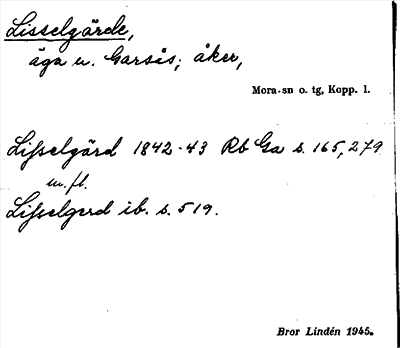 Lisselgärde,
äga u. Garsås; åker,
Mora sn o. tg, Kopp. l.
Lisselgärd 1842-43 Rb Ga s. 165, 279
m.fl.
Lisselgerd ib. s. 519.
Bror Lindén 1945.